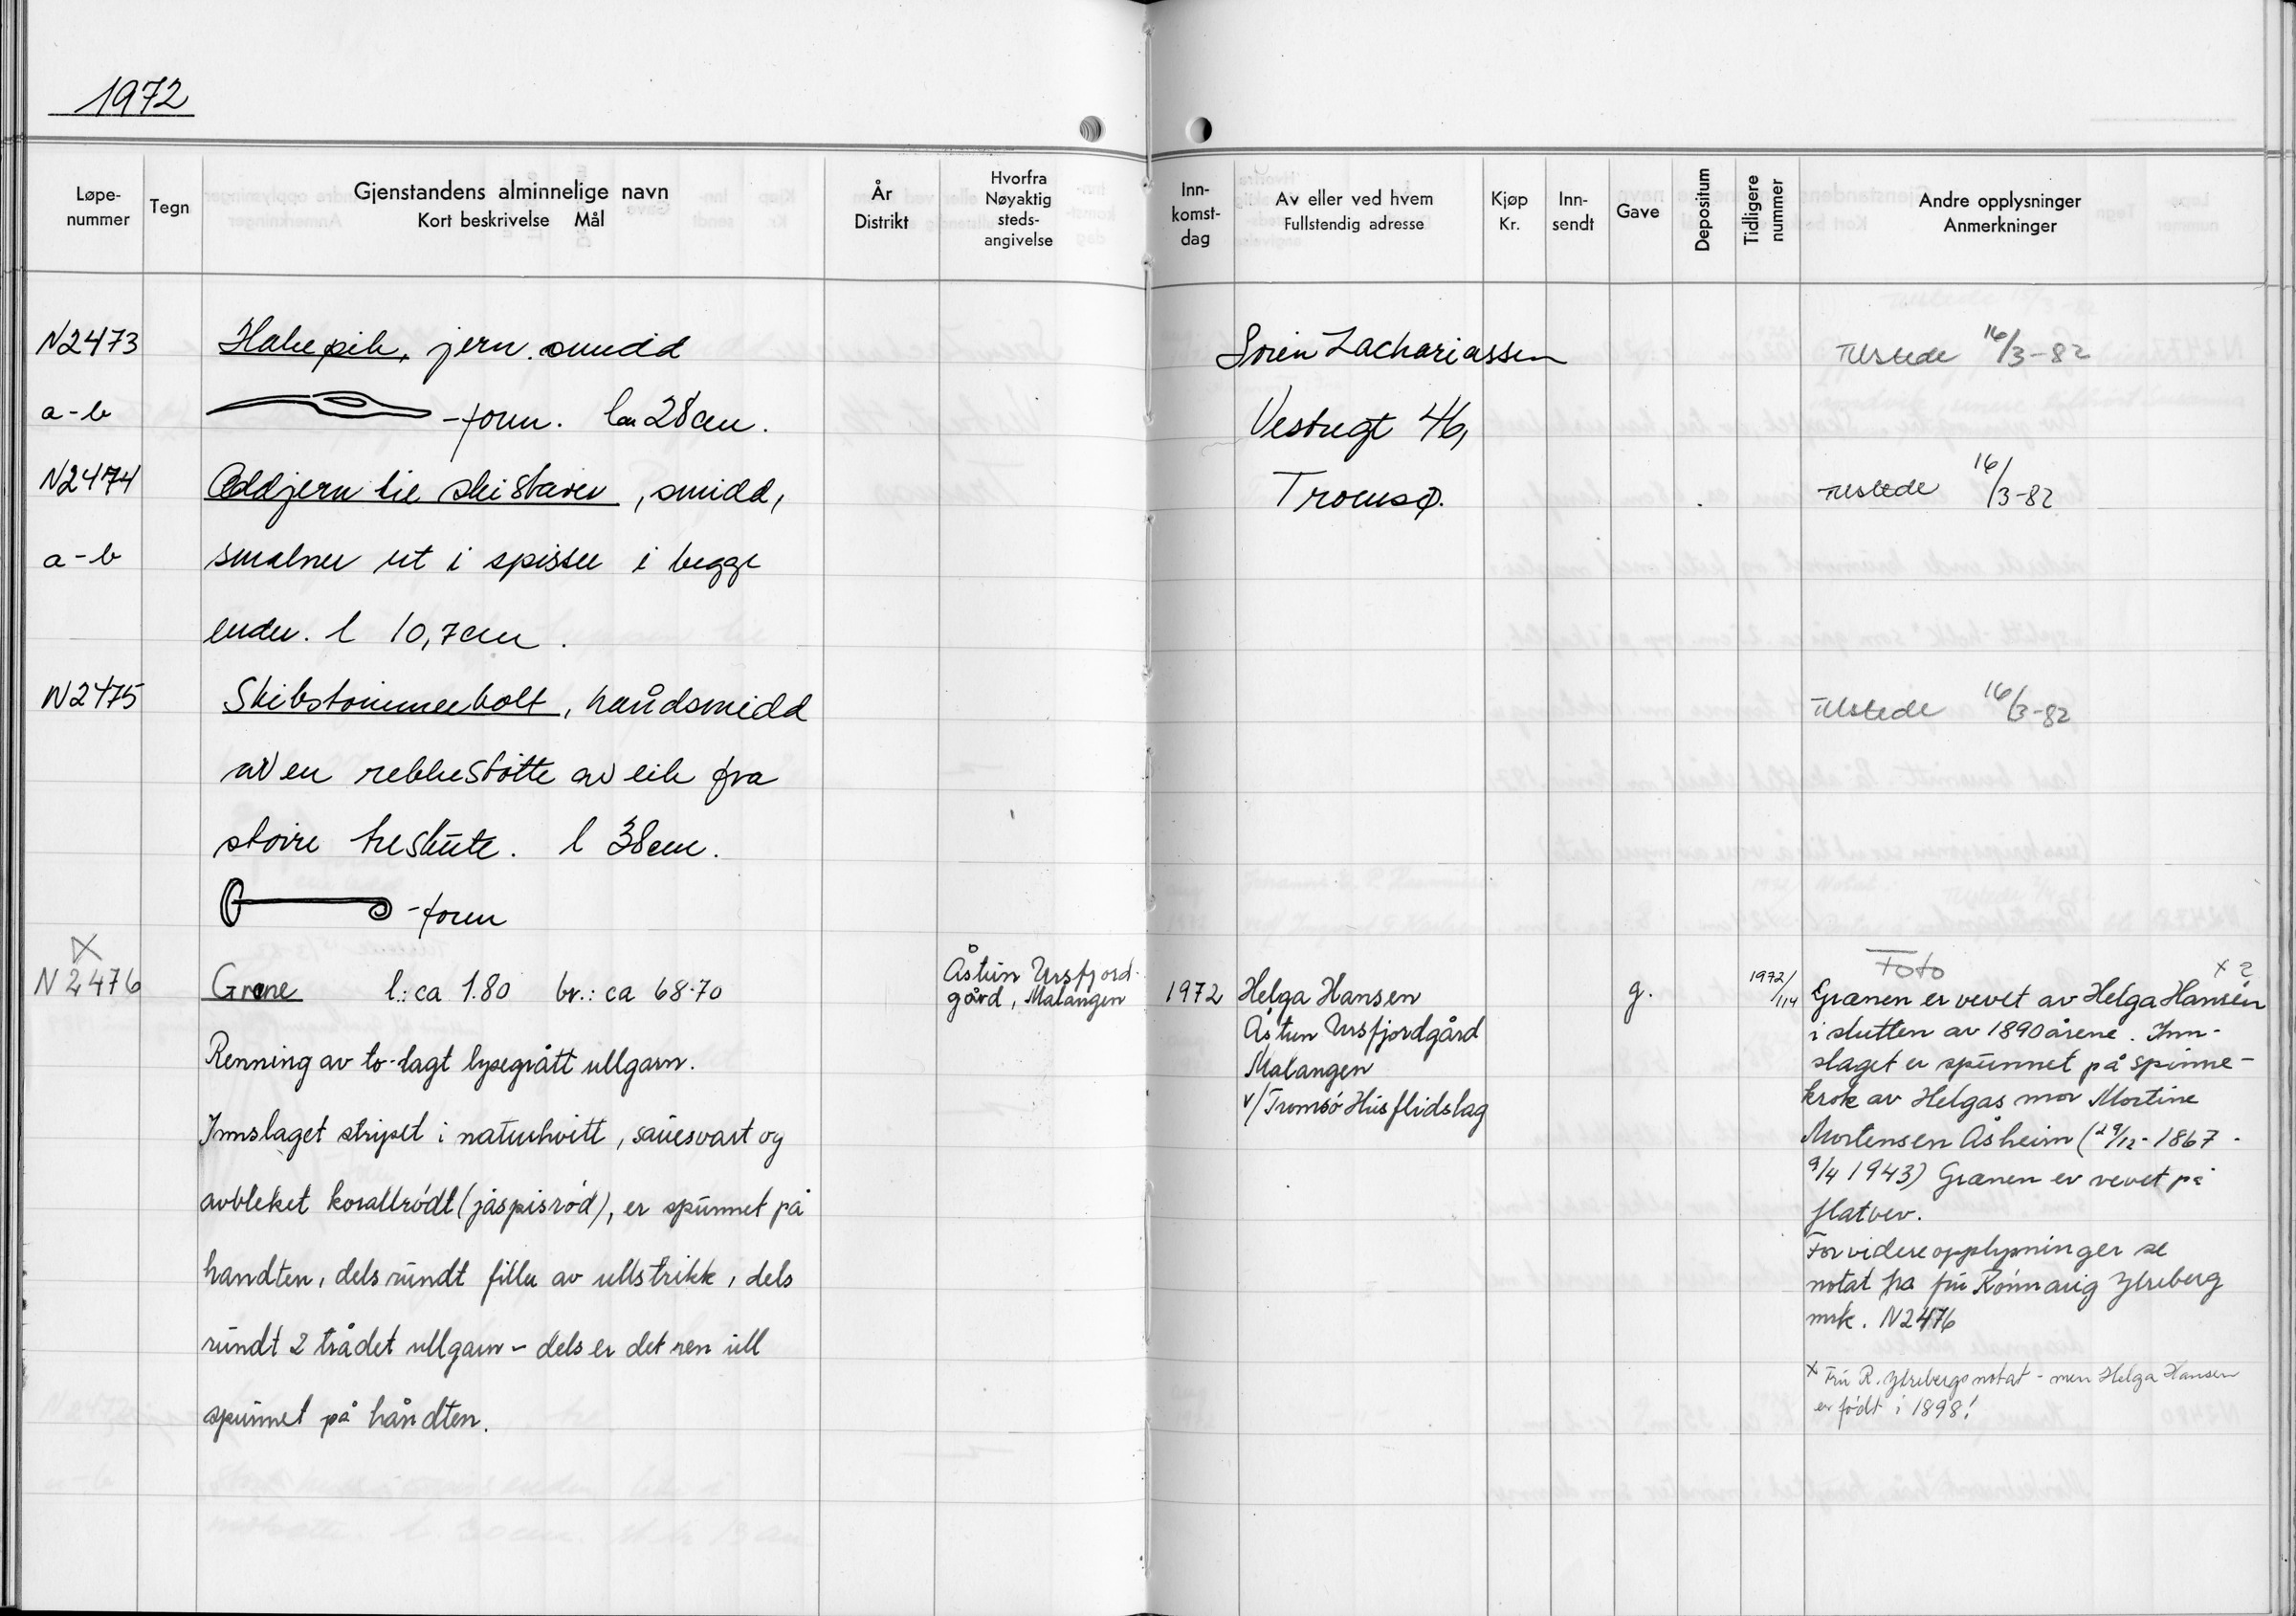 1972
Løpe-
nummer
Tegn
Gjenstandens alminnelige navn
Kort beskrivelse Mål
År
Distrikt
Hvorfra
Nøyaktig
steds-
angivelse
Inn-
komst-
dag
Av eller ved hvem
Fullstendig adresse
Kjøp
Kr.
Inn-
sendt
Gave
Depositum
Tidligere
nummer
Andre opplysninger
Anmerkninger
N2473
Hakepik, jern. smidd
Sören Zachariassen
Tilstede 16/3-82
a-b
-form. l ca 28cm.
Vestregt 46,
N2474
Oddjern til skistaver, smidd,
Tromsø.
Tilstede 16/3-82
a-b
smalner ut i spisser i begge
ender. l 10,7cm.
N2475
Skibstömmerbolt, håndsmidd
Tilstede 16/3-82
av en rekkestötte av eik fra
större treskute. l 38cm.
-form
x
N2476
Grene l.: ca 1.80 br.: ca 68-70
Renning av to-lagt lysegrått ullgarn.
Innslaget stripet i naturhvitt, sauesvart og
avbleket korallrödt (jaspisröd), er spunnet på
handten, dels rundt filler av ullstrikk, dels
rundt 2 trådet ullgarn - dels er det ren ull
spunnet på håndten.
Åstun Ursfjord-
gård, Malangen
1972
Helga Hansen
Åstun Ursfjordgård
Malangen
v/Tromsö Husflidslag
g.
1972/
/114
Foto
x ?
Grænen er vevet av Helga Hansen
i slutten av 1890 årene. Inn-
slaget er spunnet på spinne-
krok av Helgas mor Mortine
Mortensen Åsheim (29/12-1867-
9/4 1943) Grænen er vevet på
flatvev.
For videre opplysninger se
notat fra fru Rönnaug Ytreberg
mrk. N2476
x Fru R. Ytrebergs notat - men Helga Hansen
er födt i 1898!